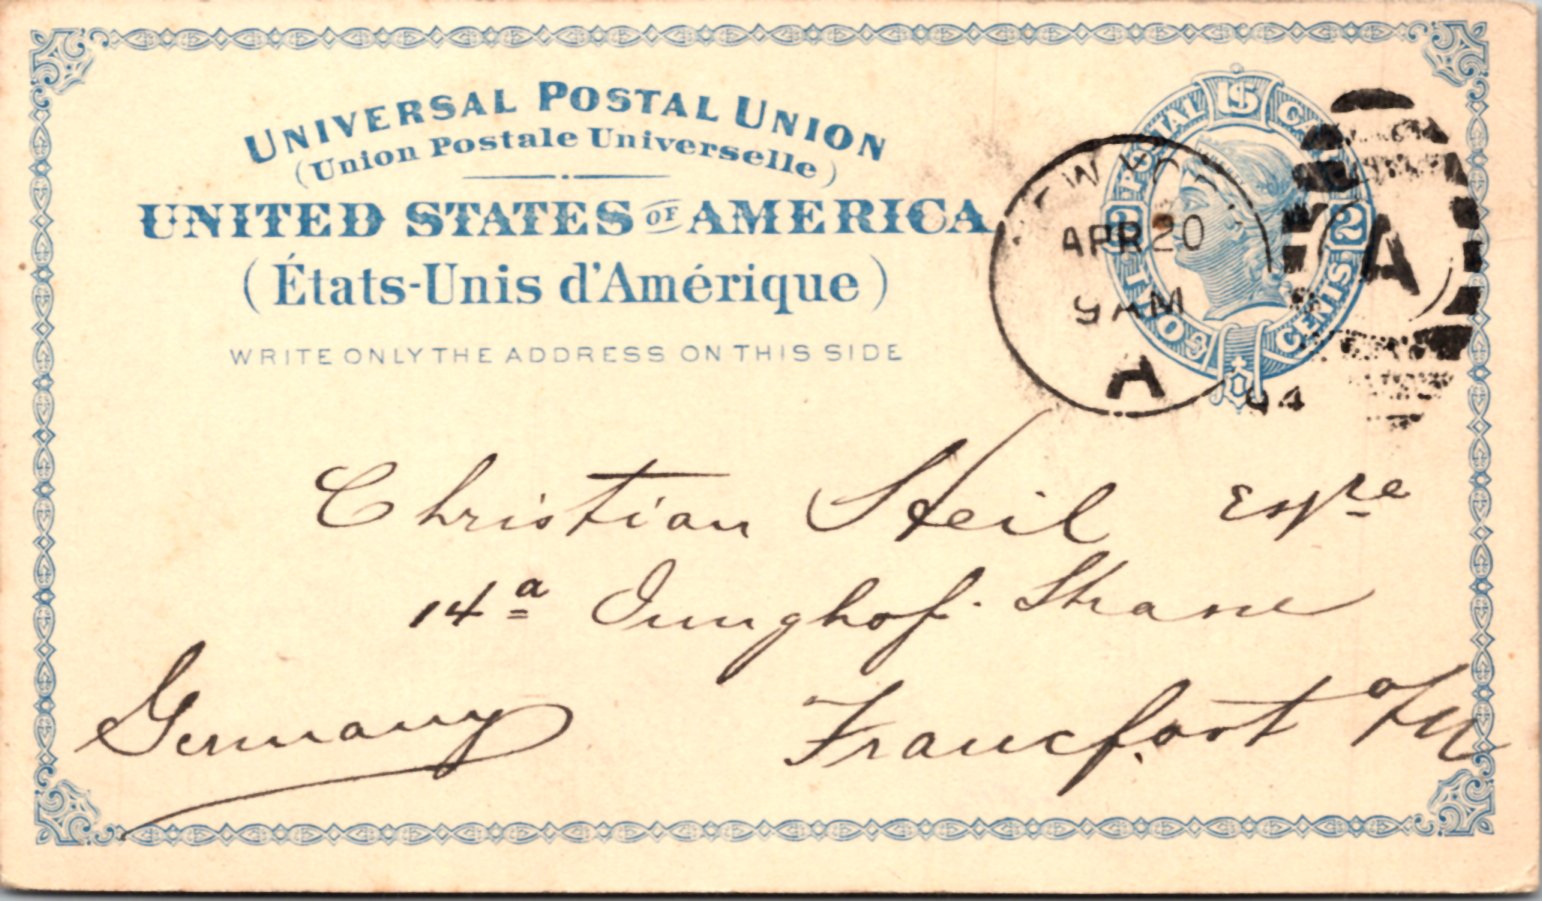 UNIVERSAL POSTAL UNION
(Union Postale Universelle)
UNITED STATES OF AMERICA
(États-Unis d'Amérique)
WRITE ONLY THE ADDRESS ON THIS SIDE
POSTAL US CARD
2 2
TWO CENTS
NEW YORK
APR 20
9 AM
A
94
A
Christian Heil Esqre
14a Junghof. Strasse
Francfort o/M
Germany